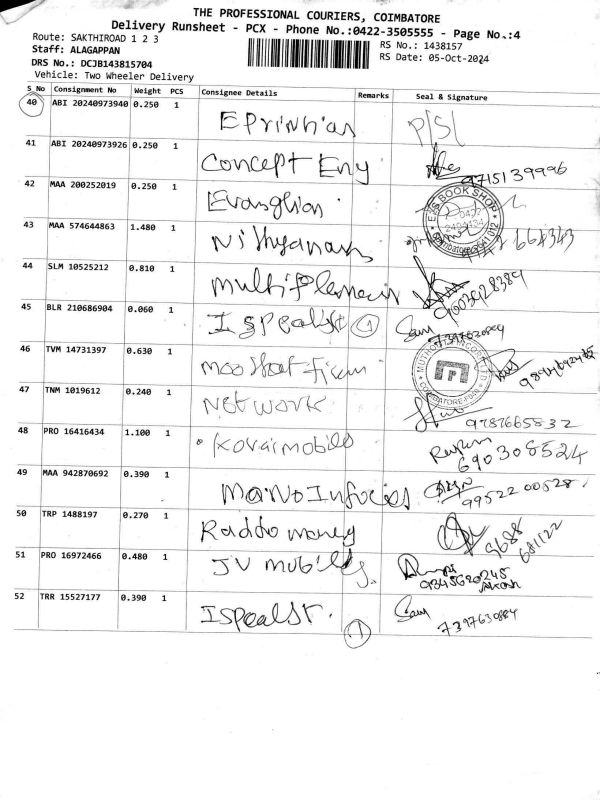 THE PROFESSIONAL COURIERS, COIMBATORE
Delivery Runsheet - PCX - Phone No.:0422-3505555 - Page No.:4
Route: SAKTHIROAD 1 2 3
RS No.: 1438157
Staff: ALAGAPPAN
RS Date: 05-Oct-2024
DRS No.: DCJB143815704
Vehicle: Two Wheeler Delivery
S No Consignment No Weight PCS Consignee Details Remarks Seal & Signature
40 ABI 20240973940 0.250 1
41 ABI 20240973926 0.250 1 Concept Eng 9715139996
42 MAA 200252019 0.250 1 BOOK SHOP
43 MAA 574644863 1.480 1
44 SLM 10525212 0.810 1 9003928389
45 BLR 210686904 0.060 1 Ispealst 1 Sam
46 TVM 14731397 0.630 1
47 TNM 1019612 0.240 1 Network 9787665832
48 PRO 16416434 1.100 1 Kovaimobile 690308524
49 MAA 942870692 0.390 1 99522 00528
50 TRP 1488197 0.270 1 Raddo money
51 PRO 16972466 0.480 1 JV mobiles. 9345620245
52 TRR 15527177 0.390 1 Ispealst. 1 Sam